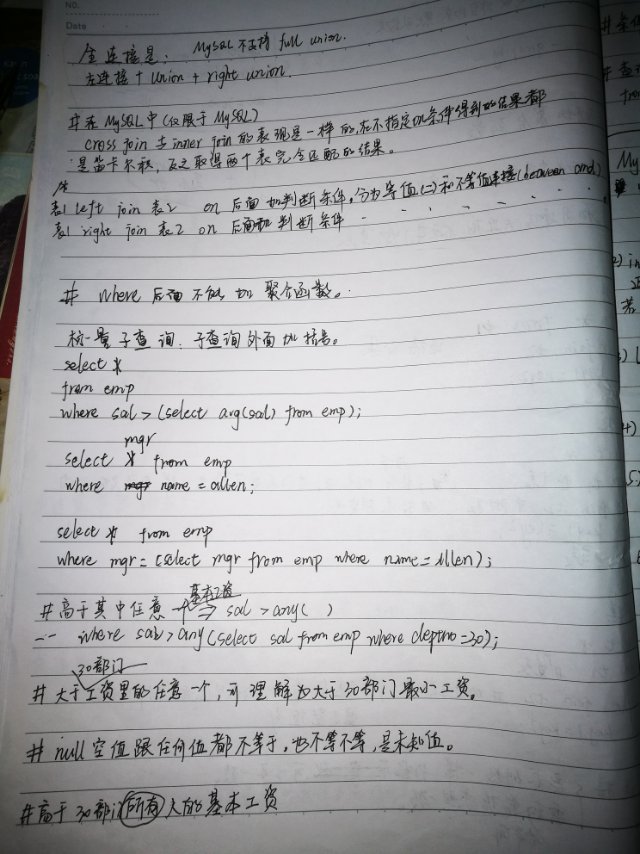 NO.
Date
全连接是: MySQL不支持 full union.
左连接 + union + right union.
# 在 MySQL 中 (仅限于 MySQL)
cross join 与 inner join 的表现是一样的,在不指定on条件得到的结果都
是笛卡尔积,反之取得两个表完全匹配的结果。
表1 left join 表2 on 后面加判断条件,分为等值(=)和不等值连接(between and)
表1 right join 表2 on 后面加判断条件
# where 后面不能加聚合函数。
标量子查询、子查询外面加括号。
select *
from emp
where sal > (select avg(sal) from emp);
mgr
select * from emp
where name = allen;
select * from emp
where mgr = (select mgr from emp where name = allen);
基本工资
# 高于其中任意一个 ⇒ sal > any( )
-- where sal > any(select sal from emp where deptno = 30);
30部门
# 大于工资里的任意一个,可理解为大于30部门最小工资。
# null 空值跟任何值都不等于,也不等不等,是未知值。
# 高于30部门所有人的基本工资